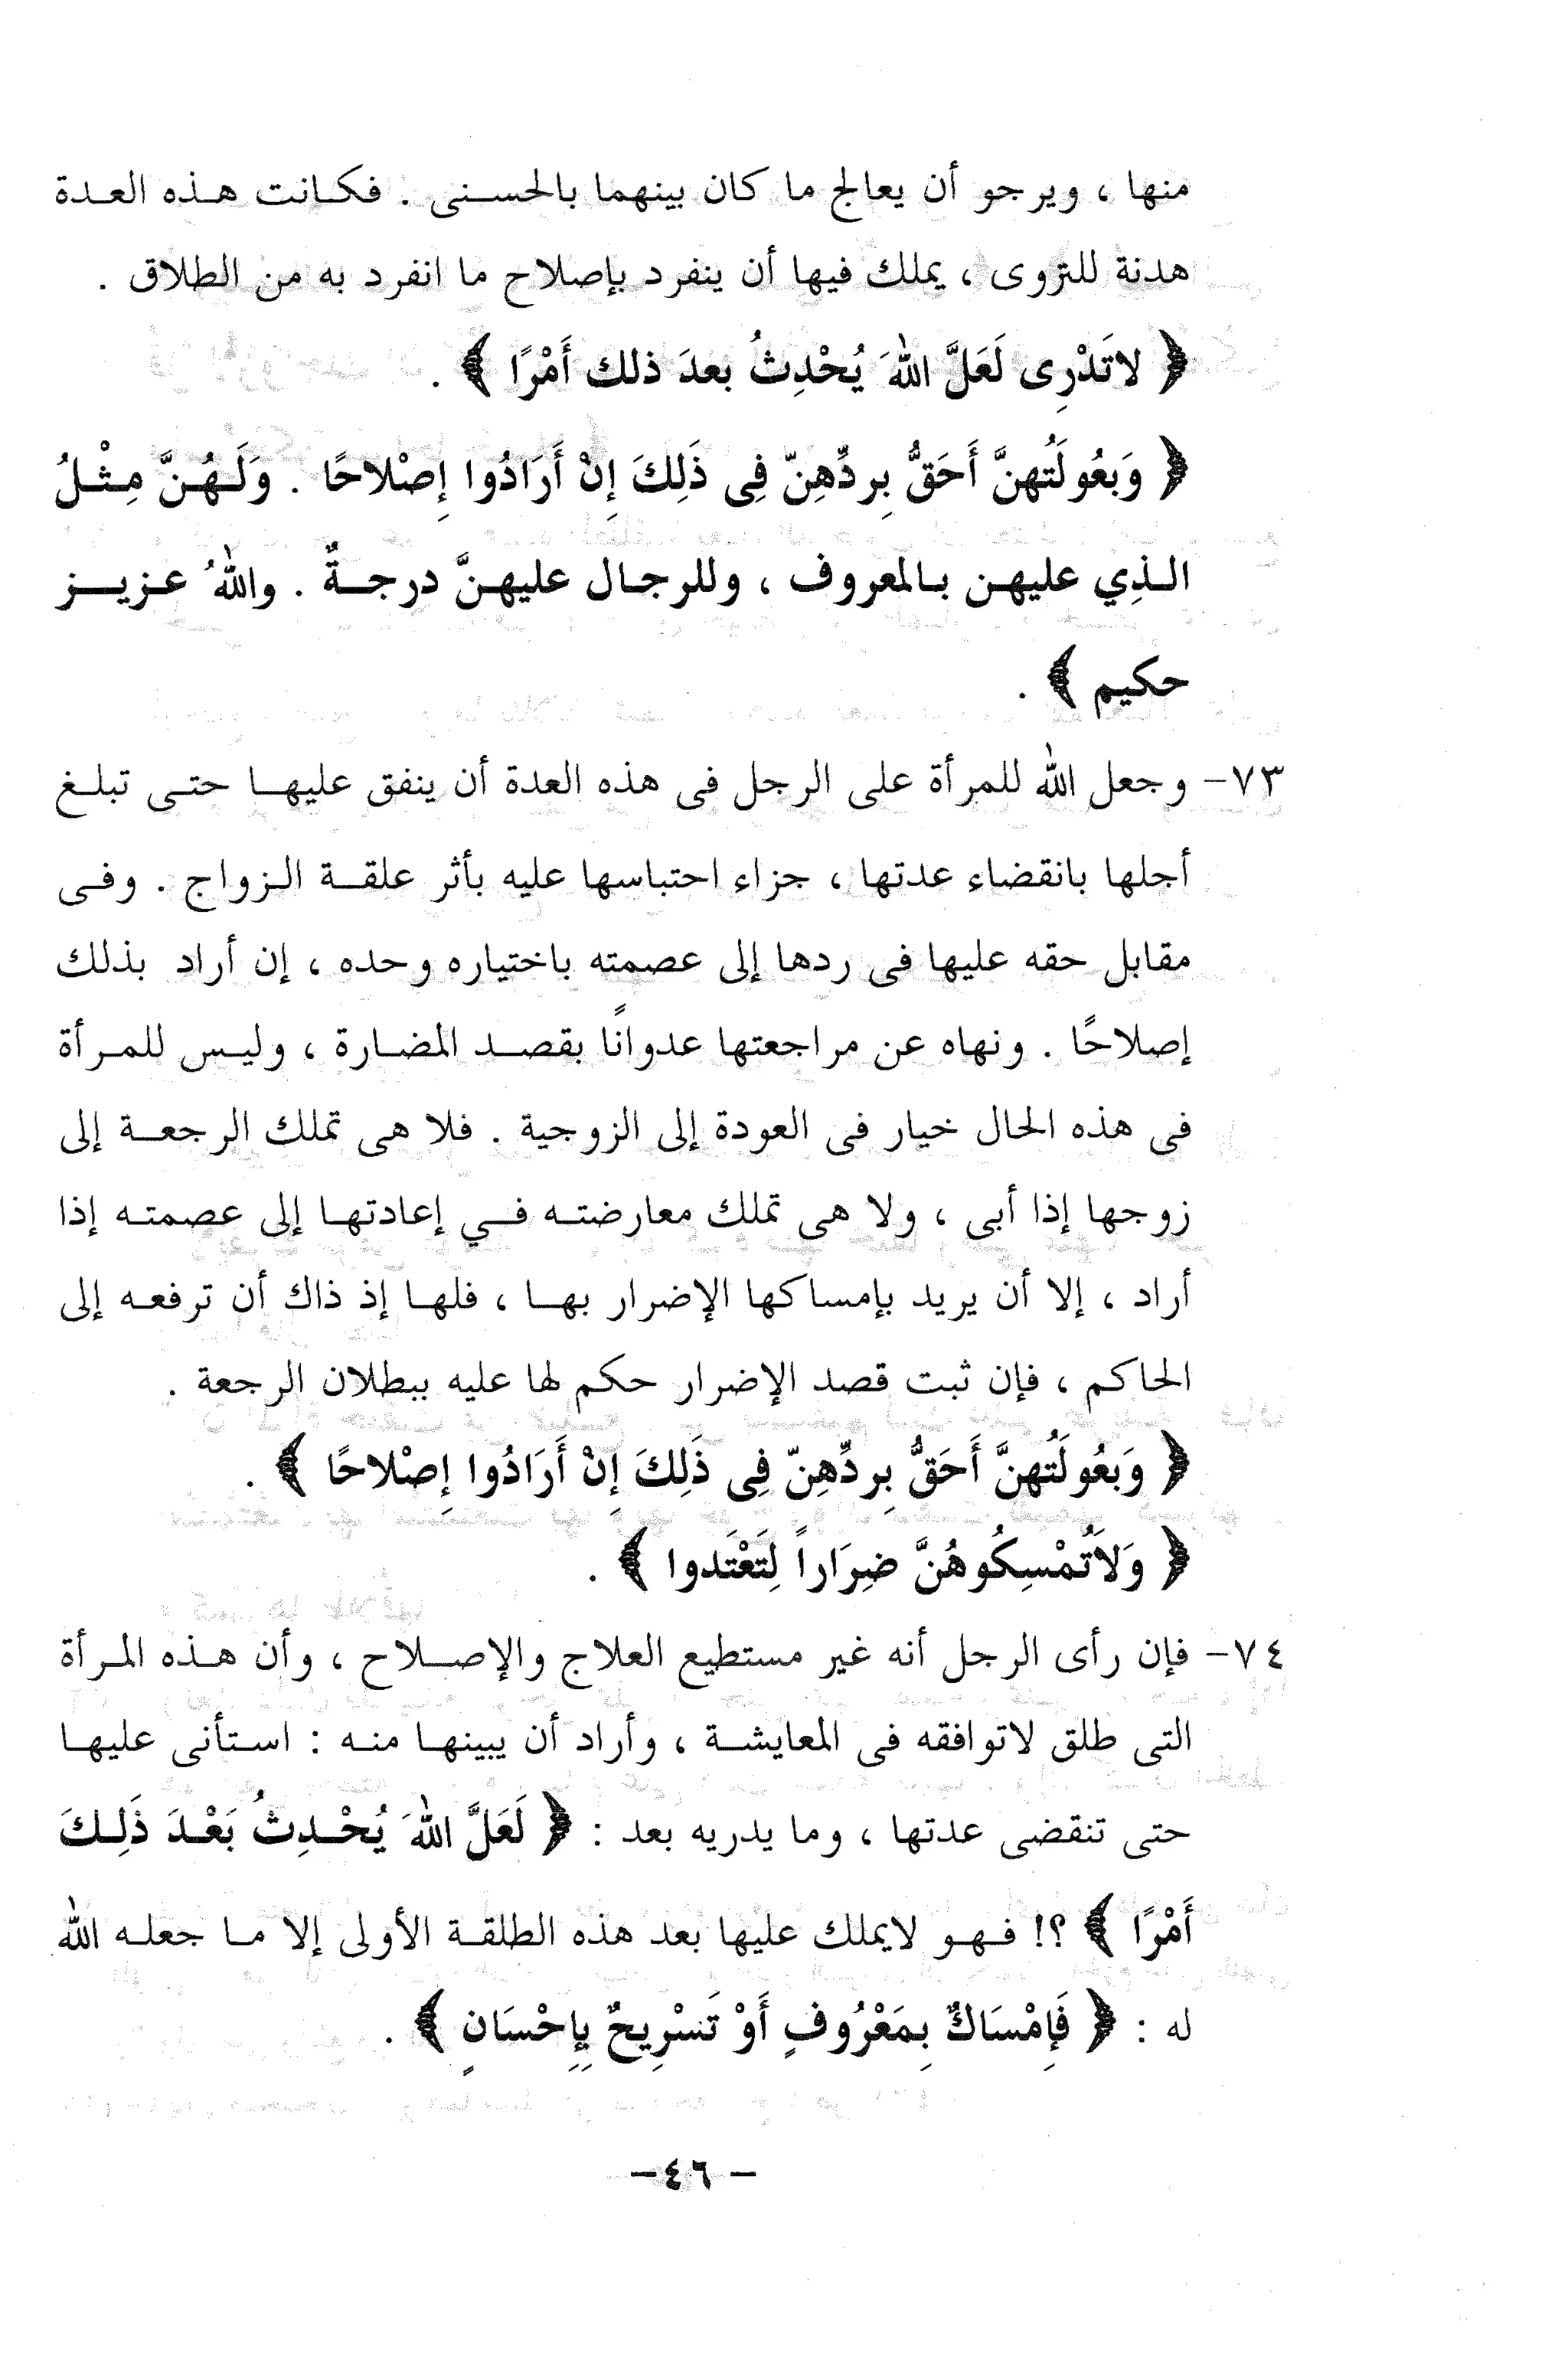 منها ، ويرجو أن يعالج ما كان بينهما بالحسنى . فكانت هذه العدة
هدنة للتروى ، يملك فيها أن ينفرد بإصلاح ما انفرد به من الطلاق .
﴿ لاتَدْرِى لَعَلَّ اللهَ يُحْدِثُ بعدَ ذلك أَمْرًا ﴾ .
﴿ وَبعُولَتُهنَّ أَحَقُّ بِردِّهِنّ فِى ذَلِكَ إِنْ أَرَادُوا إِصْلاحًا . وَلَهُنَّ مِثْلُ
الذِي عليهن بالمعروف ، وللرجال عليهنَّ درجةٌ . واللهُ عزيز
حكيم ﴾ .
٧٣- وجعل الله للمرأة على الرجل فى هذه العدة أن ينفق عليها حتى تبلغ
أجلها بانقضاء عدتها ، جزاء احتباسها عليه بأثر علقة الزواج . وفى
مقابل حقه عليها فى ردها إلى عصمته باختياره وحده ، إن أراد بذلك
إصلاحًا . ونهاه عن مراجعتها عدوانًا بقصد المضارة ، وليس للمرأة
فى هذه الحال خيار فى العودة إلى الزوجية . فلا هى تملك الرجعة إلى
زوجها إذا أبى ، ولا هى تملك معارضته في إعادتها إلى عصمته إذا
أراد ، إلا أن يريد بإمساكها الإضرار بها ، فلها إذ ذاك أن ترفعه إلى
الحاكم ، فإن ثبت قصد الإضرار حكم لها عليه ببطلان الرجعة .
﴿ وَبعُولَتُهنَّ أَحَقُّ بِردِّهِنّ فِى ذَلِكَ إِنْ أَرَادُوا إِصْلاحًا ﴾ .
﴿ وَلاَتُمْسِكُوهُنَّ ضِرَاراً لِتَعْتَدوا ﴾ .
٧٤- فإن رأى الرجل أنه غير مستطيع العلاج والإصلاح ، وأن هذه المرأة
التى طلق لاتوافقه فى المعايشة ، وأراد أن يبينها منه : استأنى عليها
حتى تنقضى عدتها ، وما يدريه بعد : ﴿ لَعَلَّ اللهَ يُحْدِثُ بَعْدَ ذَلِكَ
أَمْرًا ﴾ ؟! فهو لايملك عليها بعد هذه الطلقة الأولى إلا ما جعله الله
له : ﴿ فَإِمْسَاكٌ بِمَعْرُوفٍ أَوْ تَسْرِيحٌ بِإِحْسَانٍ ﴾ .
- ٤٦-